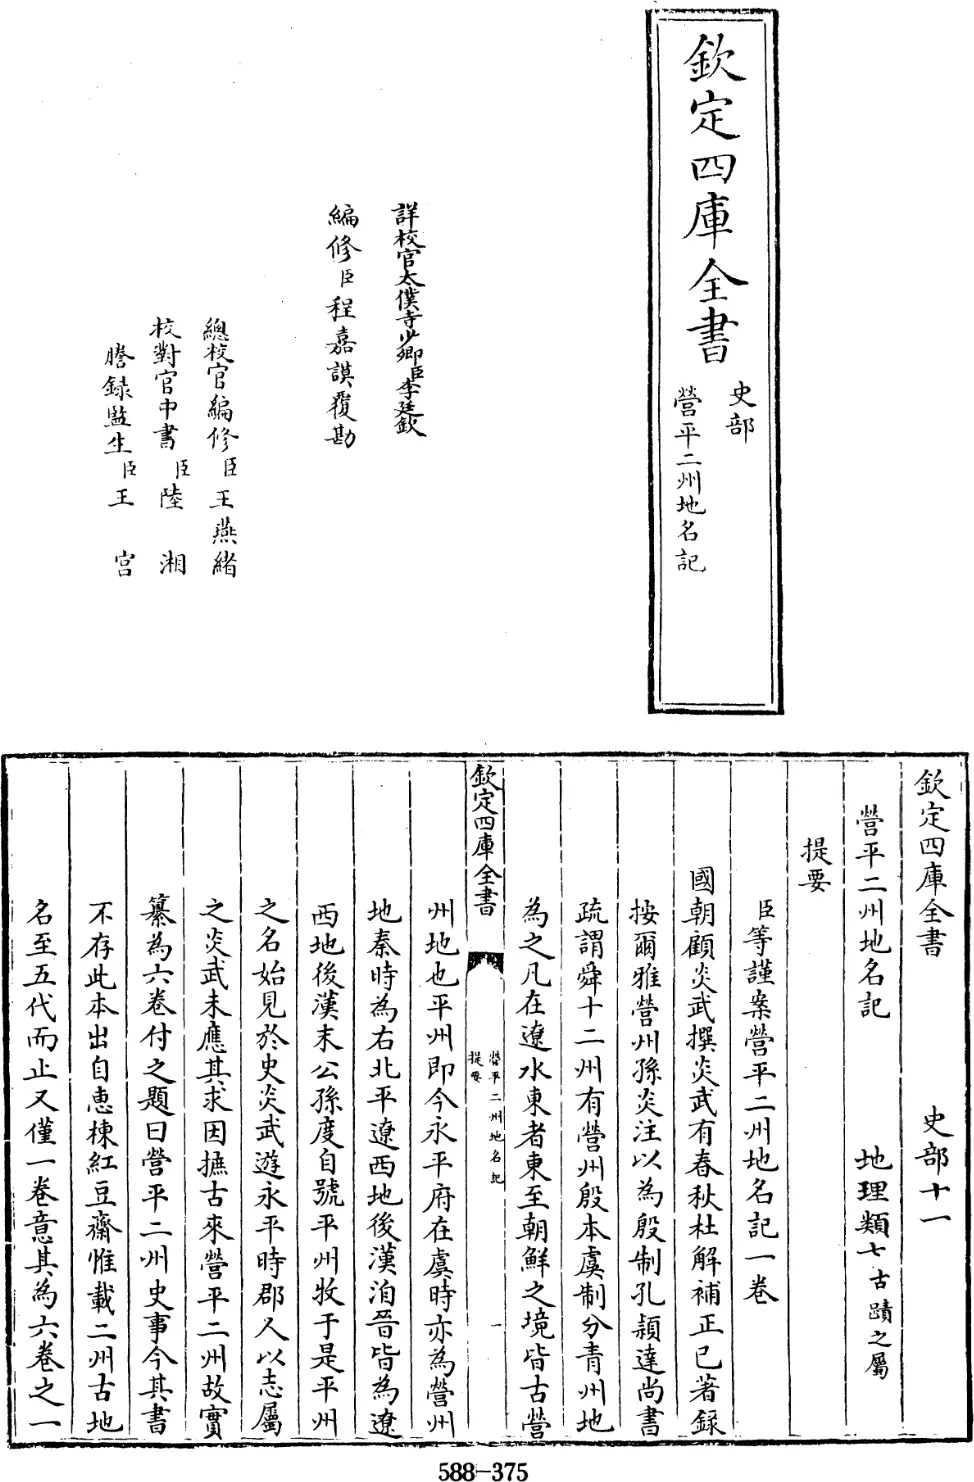 欽定四庫全書
史部
營平二州地名記
詳校官太僕寺少卿臣李廷欽
編修臣程嘉謨覆勘
總校官編修臣王燕緒
校對官中書臣陸湘
謄録監生臣王宫
欽定四庫全書 史部十一
營平二州地名記 地理類七古蹟之屬
提要
臣等謹案營平二州地名記一卷
國朝顧炎武撰炎武有春秋杜解補正已著録
按爾雅營州孫炎注以為殷制孔頴達尚書
疏謂舜十二州有營州殷本虞制分青州地
為之凡在遼水東者東至朝鮮之境皆古營
欽定四庫全書
營平二州地名記
提要
一
州地也平州即今永平府在虞時亦為營州
地秦時為右北平遼西地後漢洎晉皆為遼
西地後漢末公孫度自號平州牧于是平州
之名始見於史炎武遊永平時郡人以志屬
之炎武未應其求因摭古來營平二州故實
纂為六卷付之題曰營平二州史事今其書
不存此本出自惠棟紅豆齋惟載二州古地
名至五代而止又僅一卷意其為六卷之一
588-375